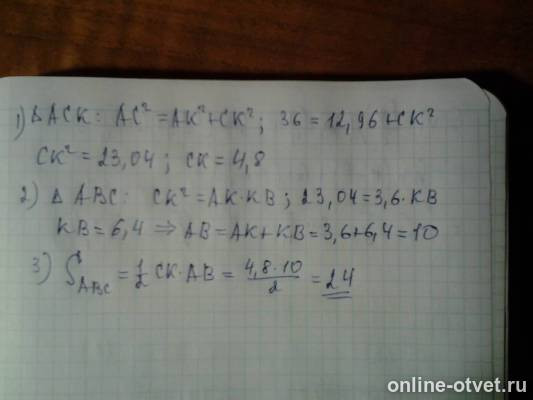 1) Δ ACK: AC² = AK² + CK²; 36 = 12,96 + CK²
CK² = 23,04; CK = 4,8
2) Δ ABC: CK² = AK·KB; 23,04 = 3,6·KB
KB = 6,4 ⇒ AB = AK + KB = 3,6 + 6,4 = 10
3) S_ABC = 1/2 CK·AB = 4,8·10/2 = 24
online-otvet.ru